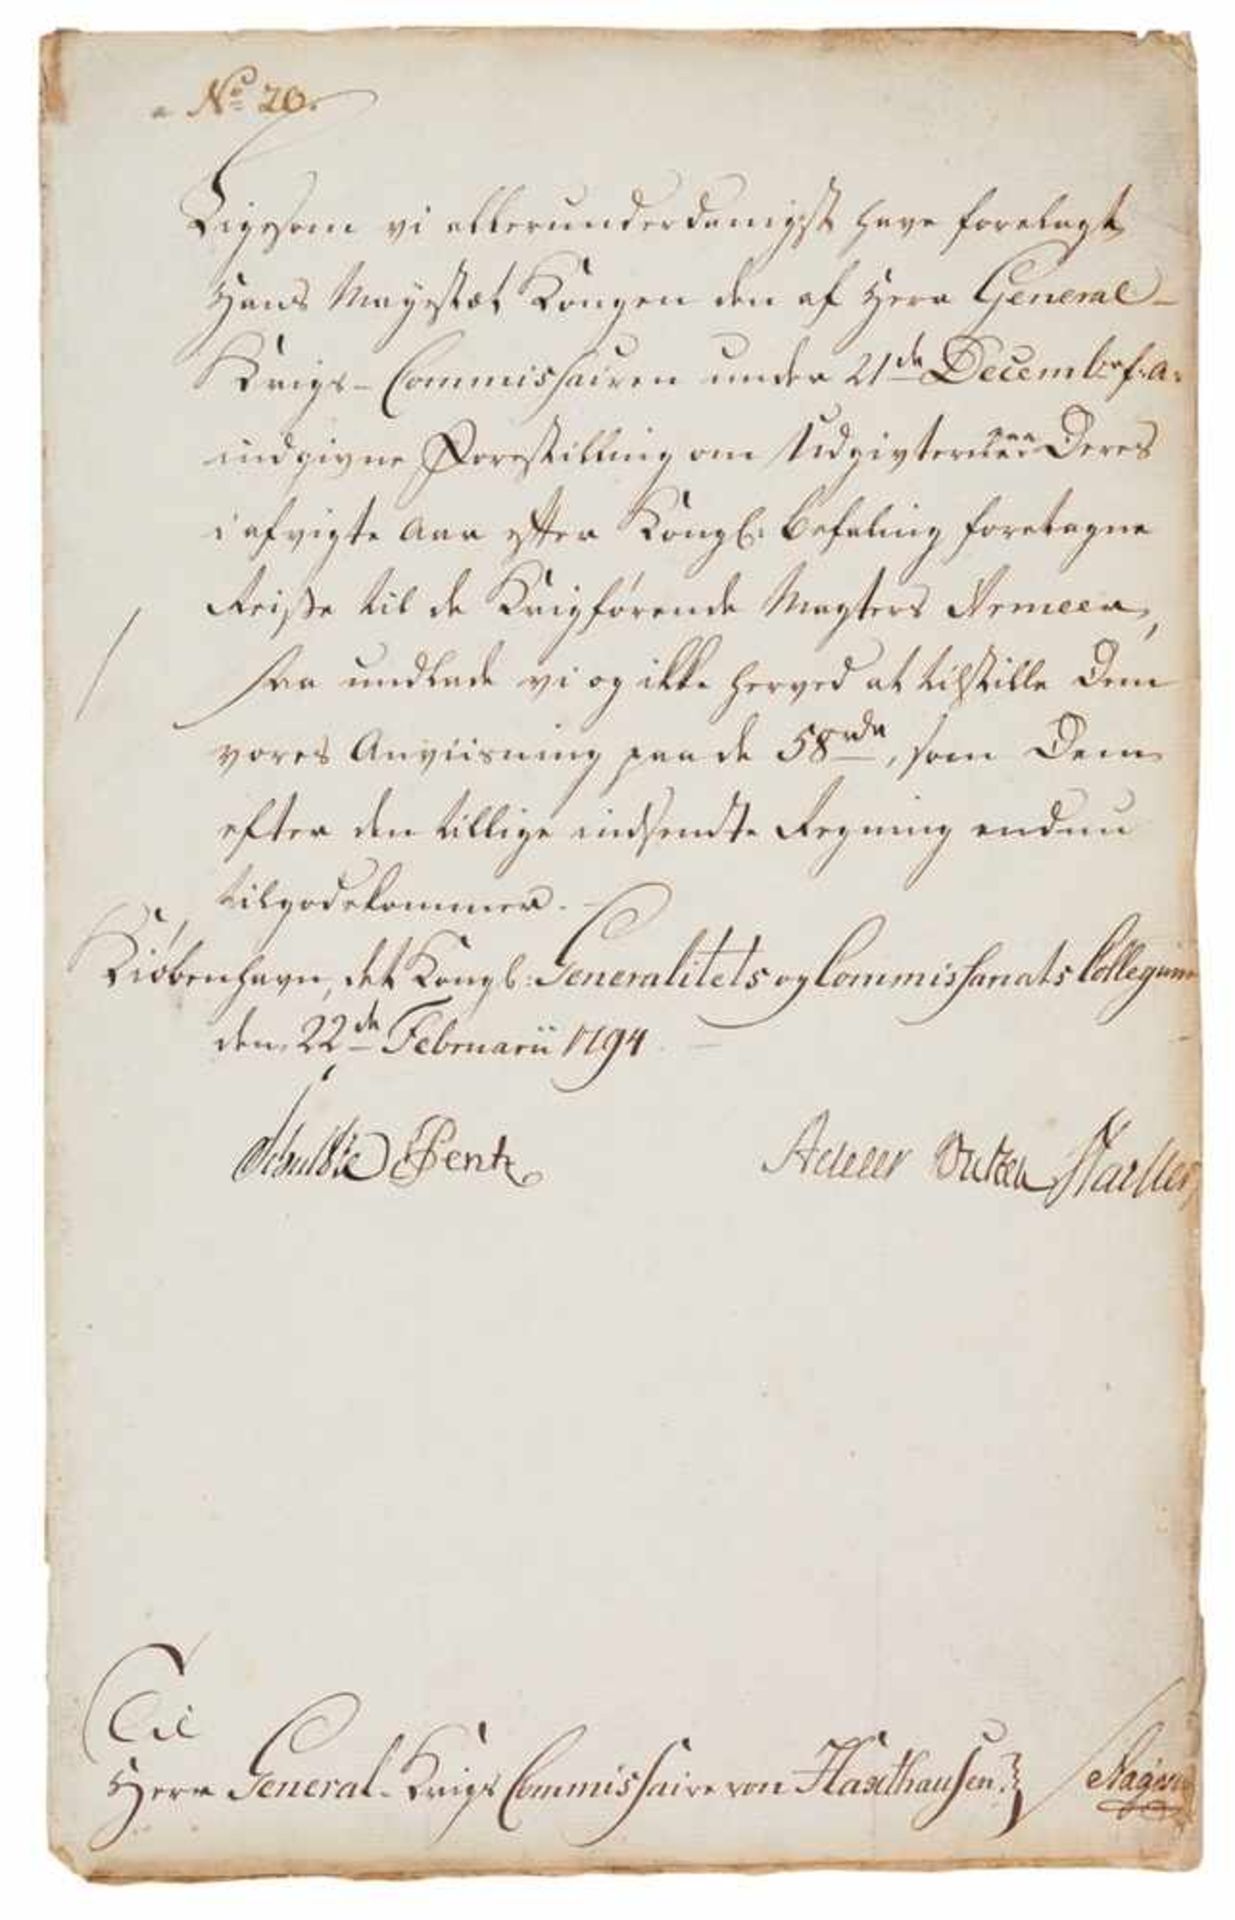 No 20.
Ligesom vi allerunderdanigst have forelagt
Hans Mayestæt Kongen den af Herr General-
Krigs-Commissairen under 21de Decembr f: a:
indgivne Forestilling om Udgifterne paa Deres
i afvigte Aar efter Kongl: Befaling foretagne
Reiße til de Krigførende Magters Armeer,
saa undlade vi og ikke herved at tilstille Dem
vores Anviisning paa de 58 rdr, som Dem
efter den tillige indsendte Regning endnu
tilgodekommer.
Kiøbenhavn, det Kongl: Generalitets og Commissariats Collegium
den 22de Februarii 1794
Schultze Pentz
Adeler Harller
Til
Herr General-Krigs Commissaire von Haxthausen.